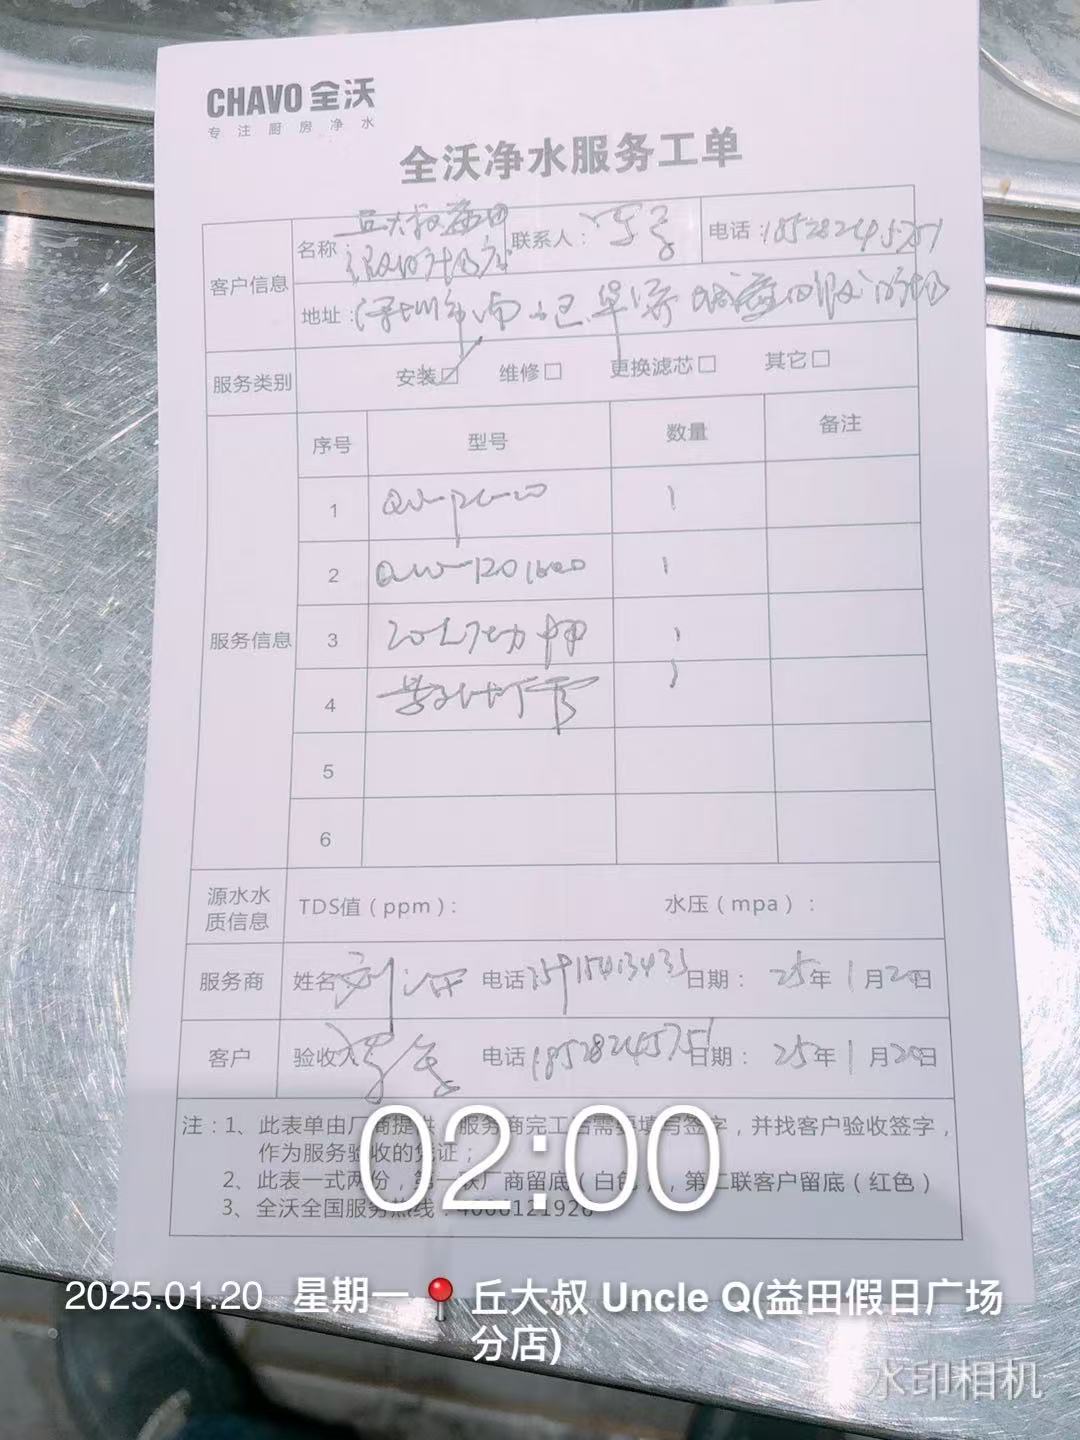 CHAVO 全沃
专注厨房净水
全沃净水服务工单
客户信息
名称：丘大叔益田
假日广场店
联系人：
电话：18528245751
地址：深圳市南
服务类别
安装☑ 维修□ 更换滤芯□ 其它□
服务信息
序号 型号 数量 备注
1 1
2 1
3 1
4 1
5
6
源水水
质信息
TDS值（ppm）： 水压（mpa）：
服务商 姓名 刘 电话 日期： 25年1月20日
客户 验收人 电话 18528245751 日期： 25年1月20日
注：1、此表单由厂商提供 服务商完工 需要填写签字，并找客户验收签字，
作为服务验收的凭证；
2、此表一式两份，第一联厂商留底（白色），第二联客户留底（红色）
3、全沃全国服务热线：4000121926
02:00
2025.01.20 星期一 丘大叔 Uncle Q(益田假日广场
分店)
水印相机